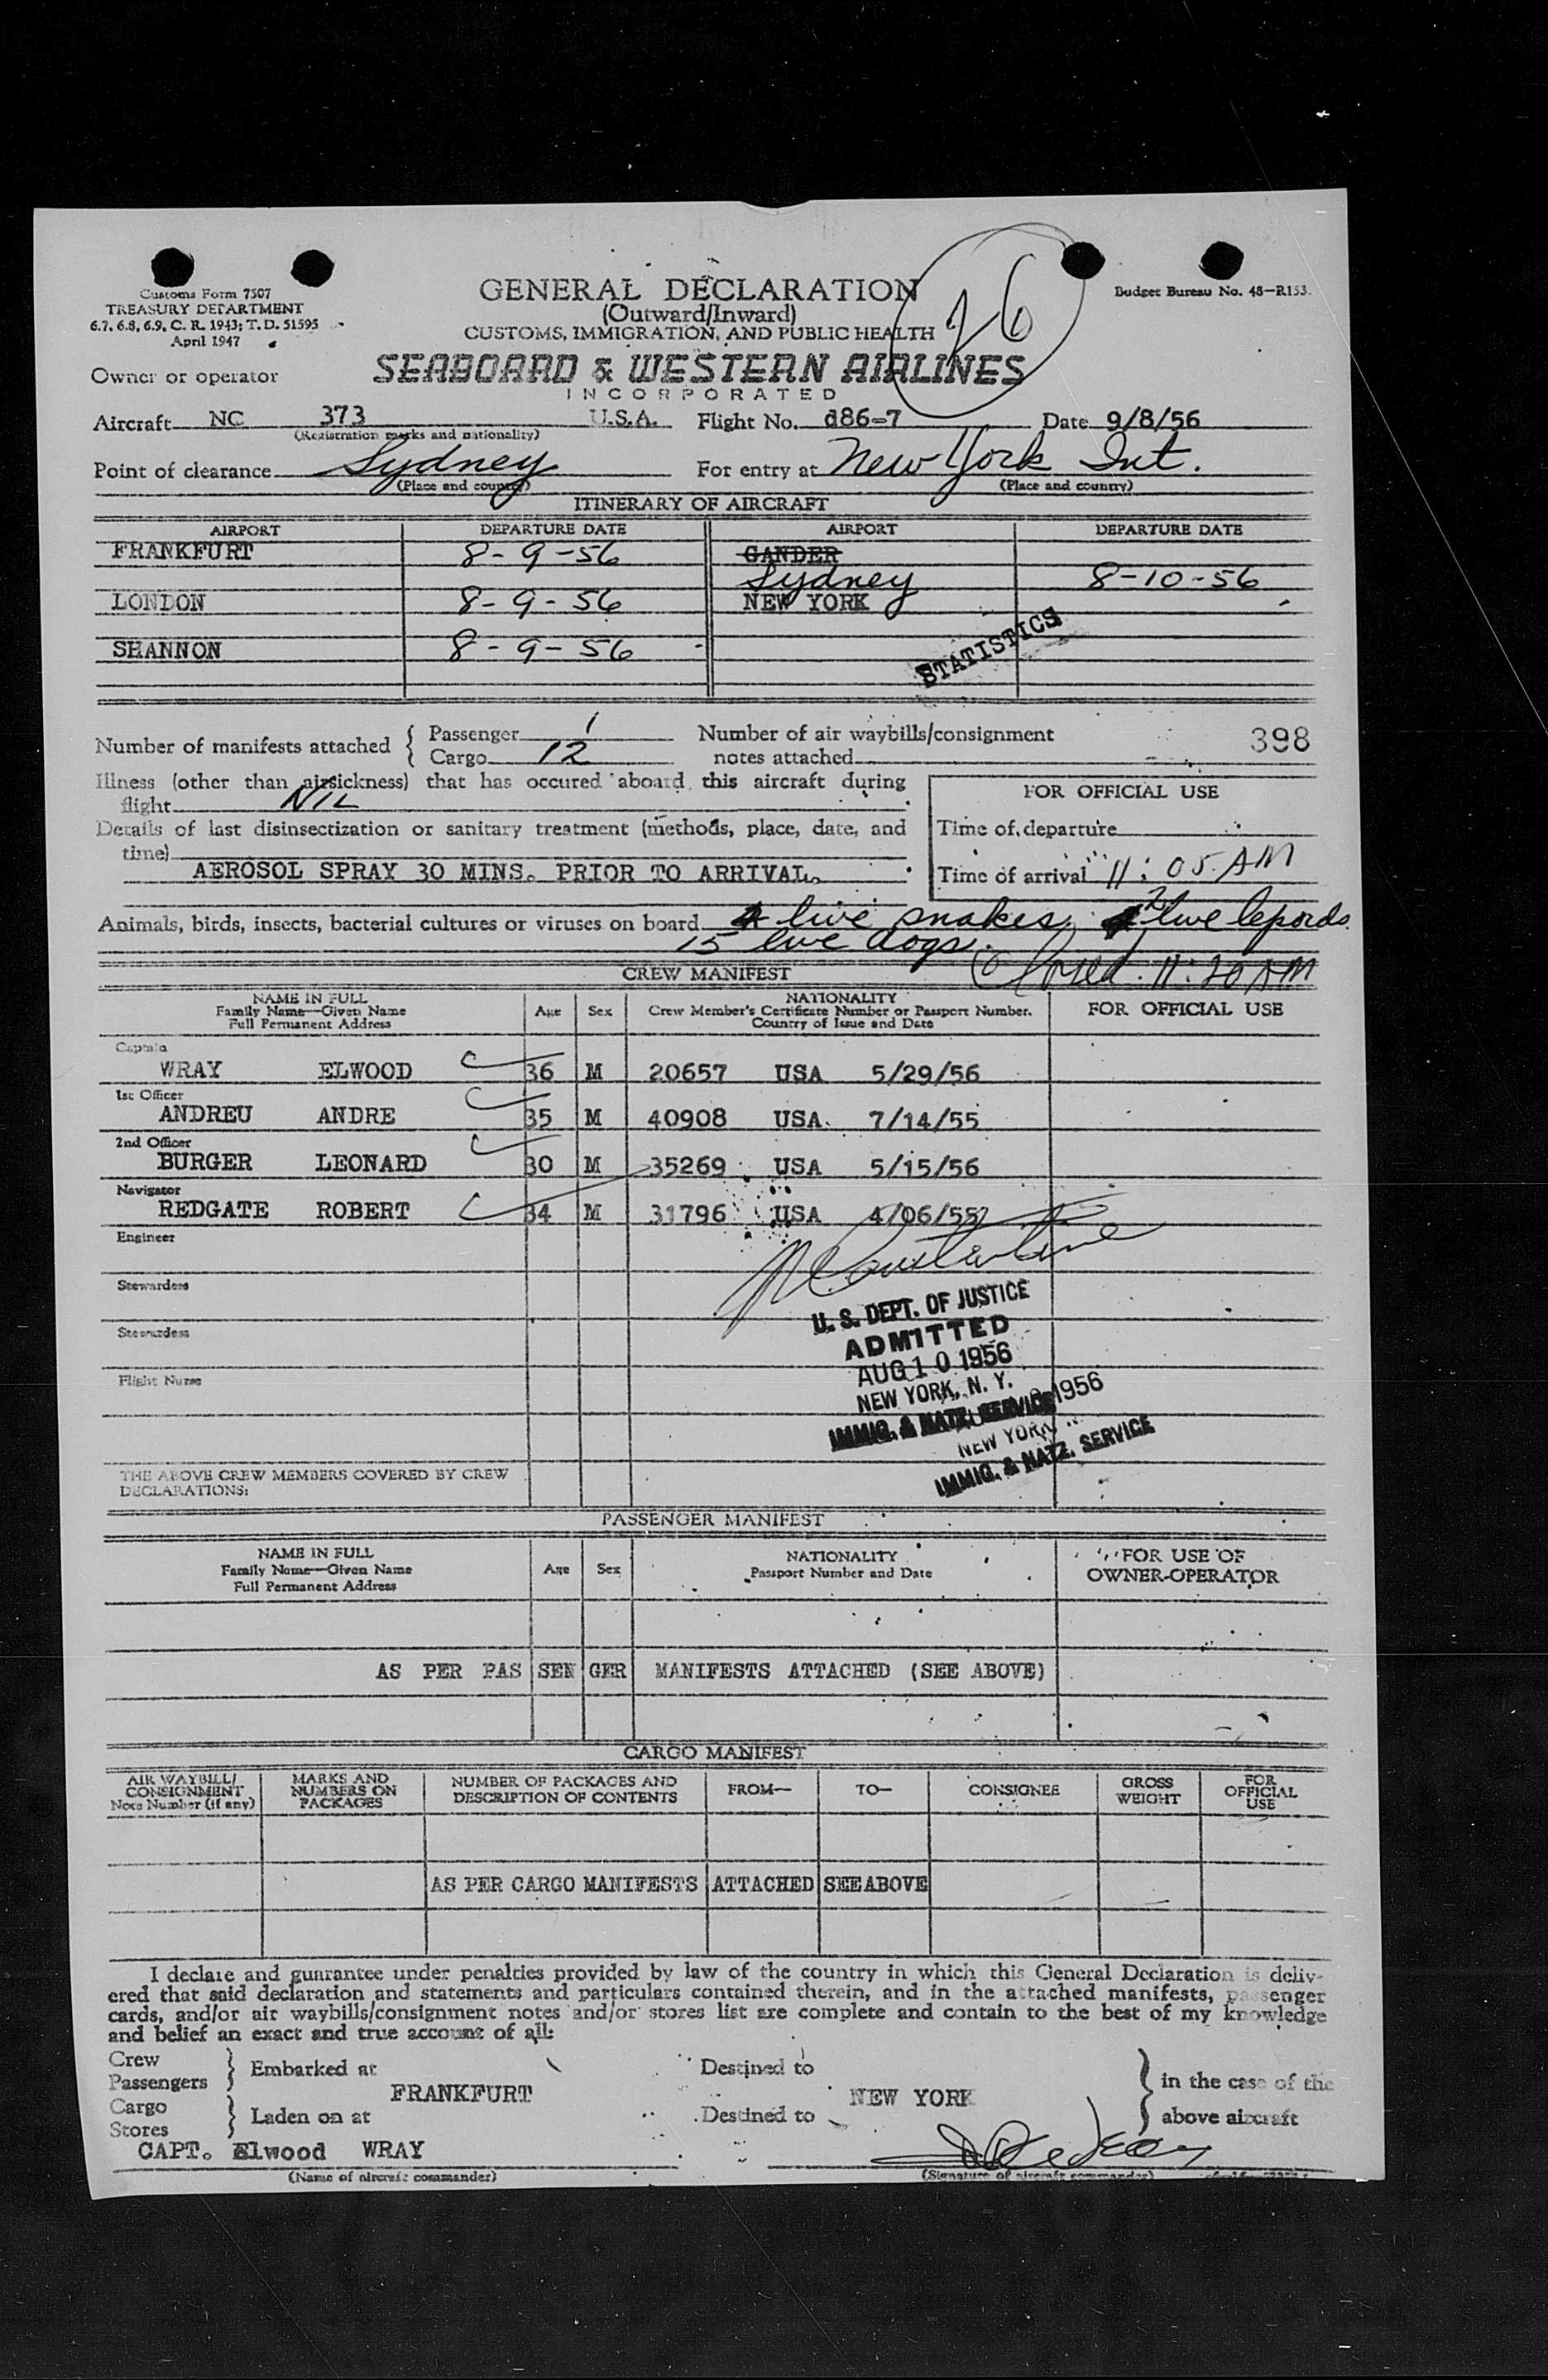 Customs Form 7507
TREASURY DEPARTMENT
6.7, 6.8, 6.9, C. R. 1943; T. D. 51595
April 1947
GENERAL DECLARATION
(Outward/Inward)
CUSTOMS, IMMIGRATION, AND PUBLIC HEALTH
26
Budget Bureau No. 48-R153.
Owner or operator
SEABOARD & WESTERN AIRLINES
INCORPORATED
Aircraft NC 373 U.S.A. Flight No. d86-7 Date 9/8/56
(Registration marks and nationality)
Point of clearance Sydney For entry at New York Int.
(Place and country) (Place and country)
ITINERARY OF AIRCRAFT
AIRPORT DEPARTURE DATE AIRPORT DEPARTURE DATE
FRANKFURT 8-9-56 GANDER
Sydney 8-10-56
LONDON 8-9-56 NEW YORK
SHANNON 8-9-56
STATISTICS
Number of manifests attached { Passenger 1
Cargo 12
Number of air waybills/consignment
notes attached
398
Illness (other than airsickness) that has occured aboard this aircraft during
flight NIL
Details of last disinsectization or sanitary treatment (methods, place, date, and
time)
AEROSOL SPRAY 30 MINS. PRIOR TO ARRIVAL.
FOR OFFICIAL USE
Time of departure
Time of arrival 11:05 AM
Animals, birds, insects, bacterial cultures or viruses on board 4 live snakes, 2 live lepords
15 live dogs.
11:20 AM
CREW MANIFEST
NAME IN FULL
Family Name—Given Name
Full Permanent Address
Age Sex
NATIONALITY
Crew Member's Certificate Number or Passport Number.
Country of Issue and Date
FOR OFFICIAL USE
Captain
WRAY ELWOOD 36 M 20657 USA 5/29/56
1st Officer
ANDREU ANDRE 35 M 40908 USA. 7/14/55
2nd Officer
BURGER LEONARD 30 M 35269 USA 5/15/56
Navigator
REDGATE ROBERT 34 M 31796 USA 4/06/55
Engineer
Stewardess
Stewardess
Flight Nurse
U. S. DEPT. OF JUSTICE
ADMITTED
AUG 10 1956
NEW YORK, N. Y.
IMMIG. & NATZ. SERVICE
1956
NEW YORK
IMMIG. & NATZ. SERVICE
THE ABOVE CREW MEMBERS COVERED BY CREW
DECLARATIONS:
PASSENGER MANIFEST
NAME IN FULL
Family Name—Given Name
Full Permanent Address
Age Sex
NATIONALITY
Passport Number and Date
FOR USE OF
OWNER-OPERATOR
AS PER PAS SEN GER MANIFESTS ATTACHED (SEE ABOVE)
CARGO MANIFEST
AIR WAYBILL/
CONSIGNMENT
Note Number (if any)
MARKS AND
NUMBERS ON
PACKAGES
NUMBER OF PACKAGES AND
DESCRIPTION OF CONTENTS
FROM— TO— CONSIGNEE
GROSS
WEIGHT
FOR
OFFICIAL
USE
AS PER CARGO MANIFESTS ATTACHED SEE ABOVE
I declare and guarantee under penalties provided by law of the country in which this General Declaration is deliv-
ered that said declaration and statements and particulars contained therein, and in the attached manifests, passenger
cards, and/or air waybills/consignment notes and/or stores list are complete and contain to the best of my knowledge
and belief an exact and true account of all:
Crew
Passengers } Embarked at
Destined to
} in the case of the
FRANKFURT NEW YORK
Cargo
Stores } Laden on at
Destined to
above aircraft
CAPT. Elwood WRAY
(Name of aircraft commander) (Signature of aircraft commander)